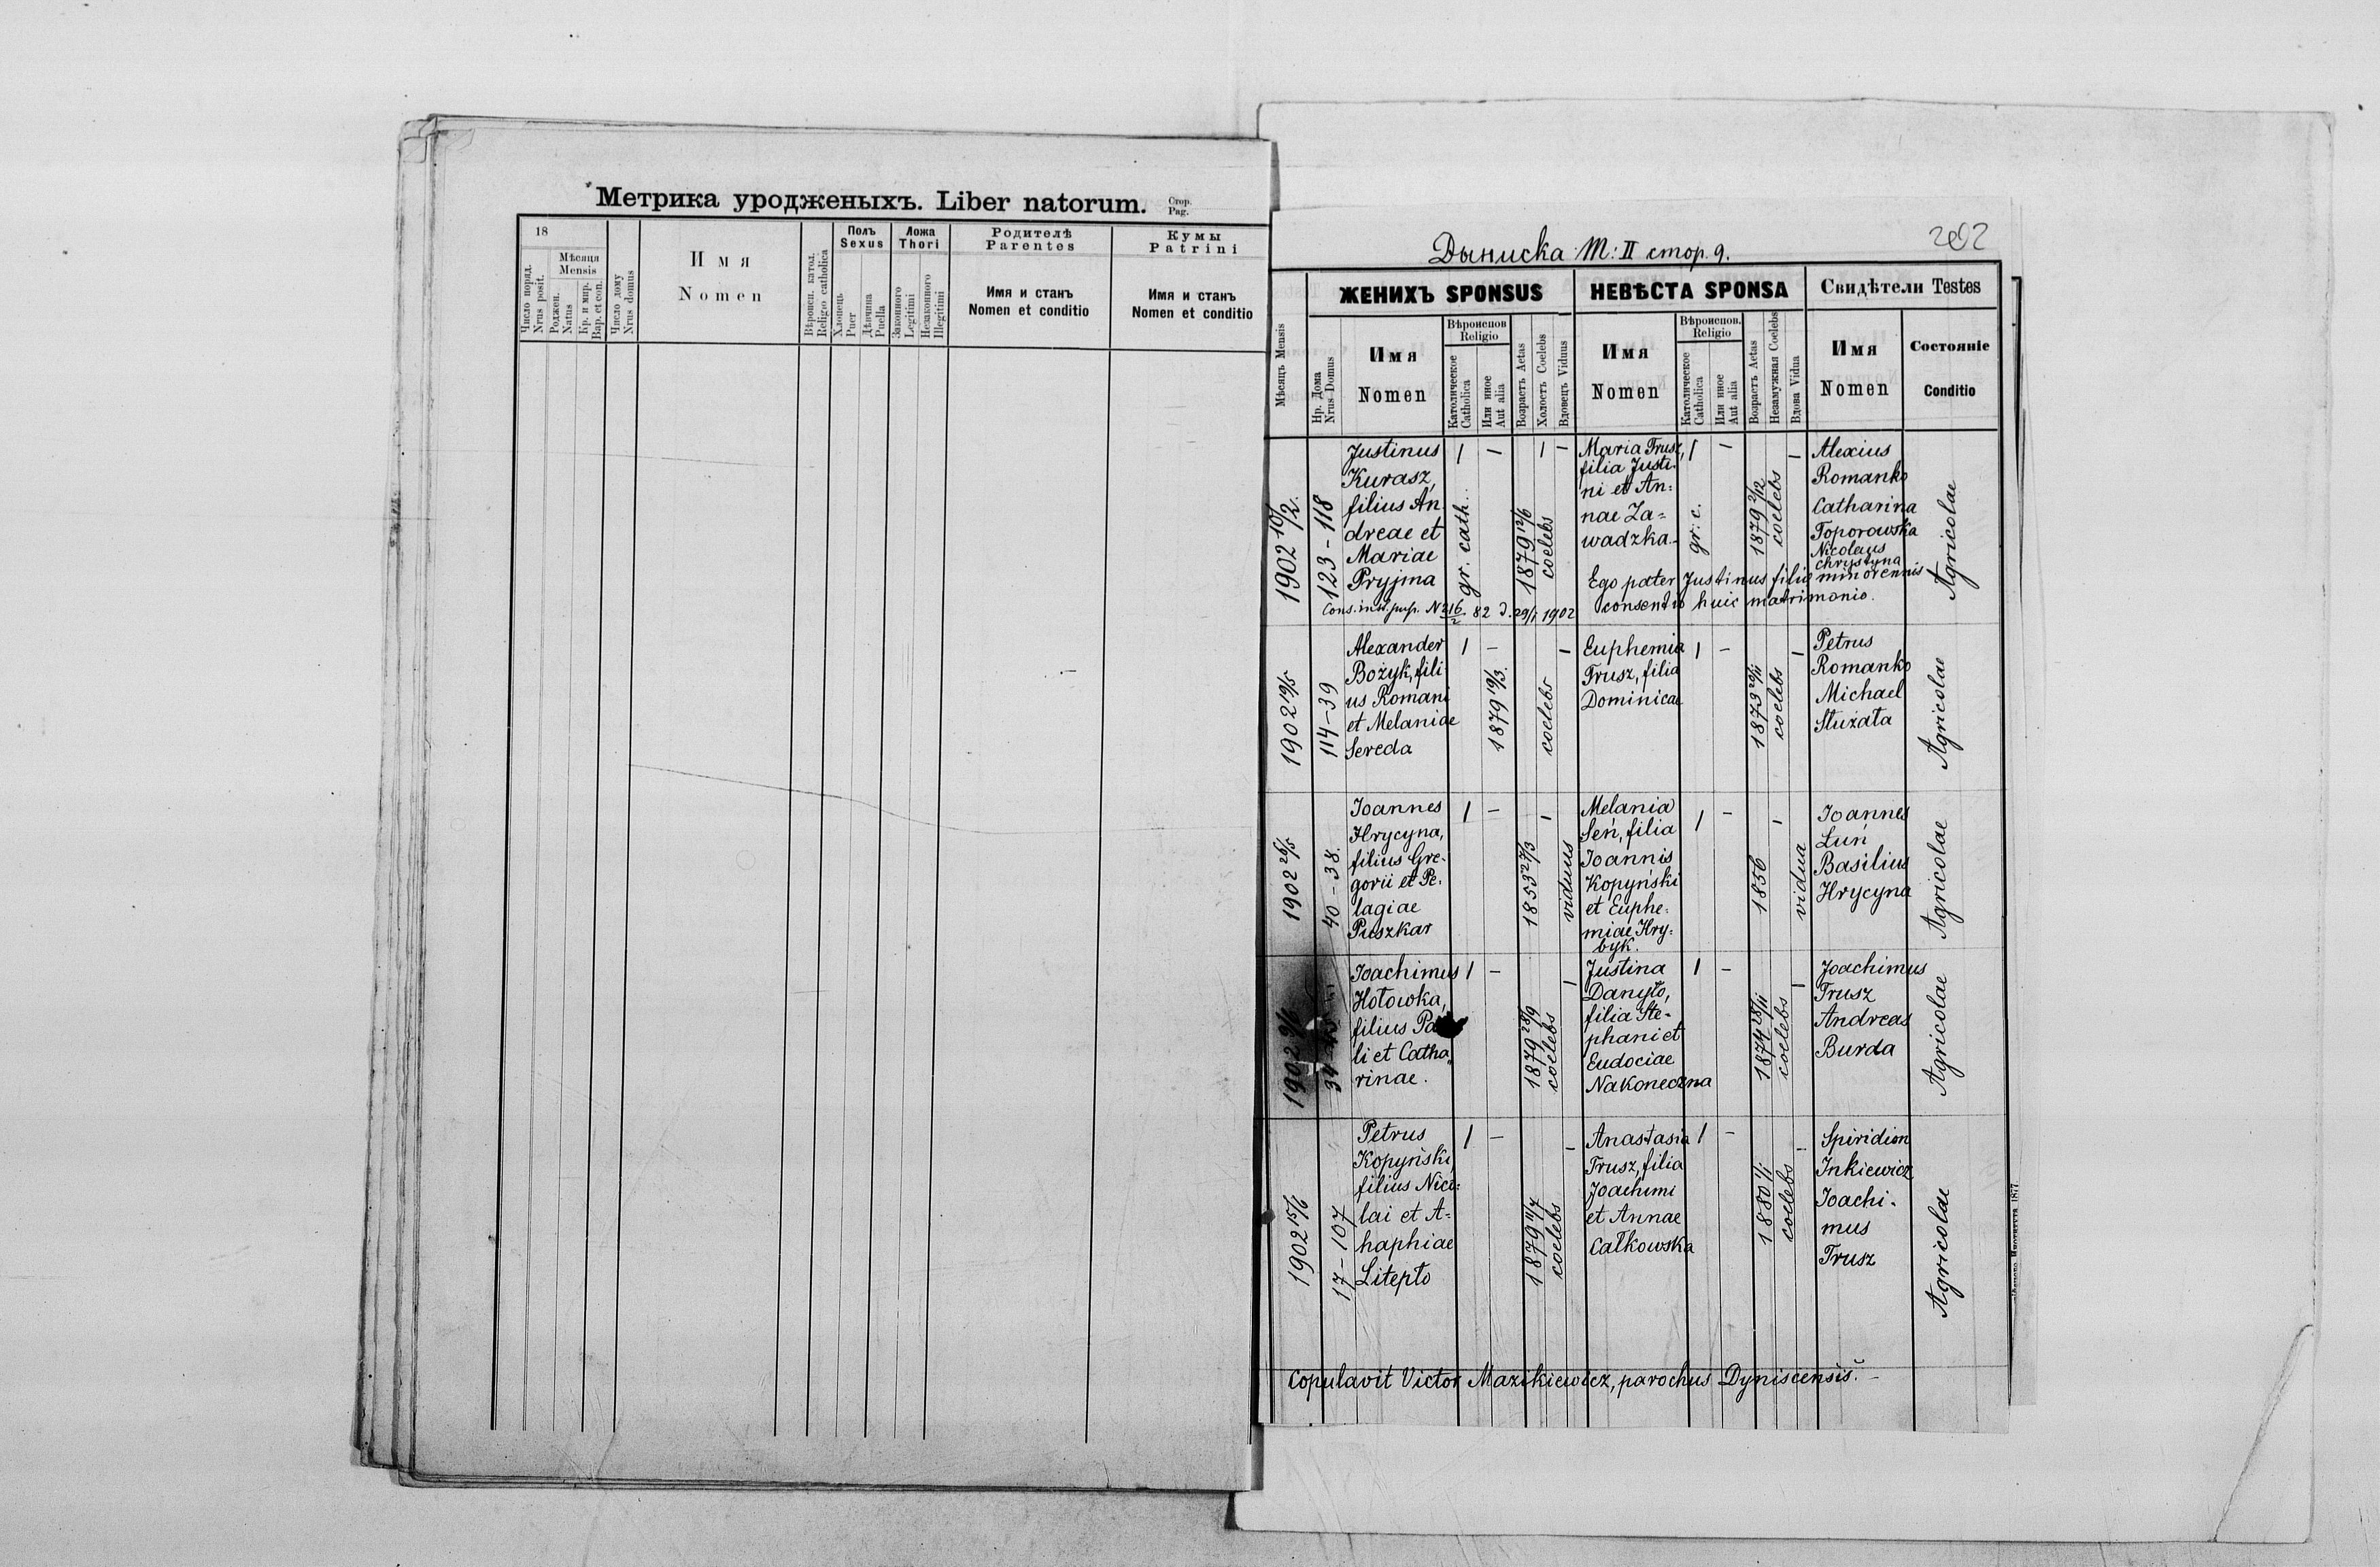 Метрика уродженыхъ. Liber natorum. Стор. Pag.
18
Число поряд. Nrus posit.
Мѣсяця Mensis
Роджен. Natus
Кр. и мир. Bap. et con.
Число дому Nrus domus
Имя
Nomen
Вѣроисп. катол. Religo catholica
Полъ
Sexus
Хлопець Puer
Дѣвчина Puella
Ложа
Thori
Законного Legitimi
Незаконного Illegitimi
Родителѣ
Parentes
Имя и станъ
Nomen et conditio
Кумы
Patrini
Имя и станъ
Nomen et conditio
202
Дыниска Т: II стор. 9.
Мѣсяцъ Mensis
ЖЕНИХЪ SPONSUS
Нр. Дома Nrus Domus
Имя
Nomen
Вѣроиспов
Religio
Католическое Catholica
Или иное Aut alia
Возрастъ Aetas
Холостъ Coelebs
Вдовецъ Viduus
НЕВѢСТА SPONSA
Имя
Nomen
Вѣроиспов.
Religio
Католическое Catholica
Или иное Aut alia
Возрастъ Aetas
Незамужная Coelebs
Вдова Vidua
Свидѣтели Testes
Имя
Nomen
Состояніе
Conditio
1902 10/2.
123-118
Justinus
Kurasz,
filius An
dreae et
Mariae
Pryjma
1 — 1 —
gr. cath.
1879 12/6
coelebs
Maria Trusz,
filia Justi-
ni et An=
nae Za=
wadzka.
1 — —
gr. c.
1879 2/12
coelebs
Alexius
Romanko
Catharina
Toporowska
Nicolaus
Chrystyna
Agricolae
Cons. 82 d. 29/1 1902
Ego pater Justinus filiae minorennis
consentio huic matrimonio.
1902 19/5
114-39
Alexander
Bożyk, fili
us Romani
et Melaniae
Sereda
1 — —
1879 19/3.
coelebs
Euphemia
Trusz, filia
Dominicae
1 — —
1873 20/11
coelebs
Petrus
Romanko
Michael
Stużała
Agricolae
1902 26/5
40-38.
Ioannes
Hrycyna,
filius Gre-
gorii et Pe.
lagiae
Puszkar
1 — —
1853 27/3
viduus
Melania
Seń, filia
Ioannis
Kopyński
et Euphe-
miae Hry-
byk.
1 — —
1856
vidua
Ioannes
Łuń
Basilius
Hrycyna
Agricolae
1902 9/6
34
Ioachimus
Hołowka,
filius Pa
li et Catha„
rinae.
1 — —
1879 28/9
coelebs
Justina
Danyło,
filia Ste-
phani et
Eudociae
Nakoneczna
1 — —
1874 28/11
coelebs
Joachimus
Trusz
Andreas
Burda
Agricolae
1902 15/6
17-107
Petrus
Kopyński,
filius Nico=
lai et A=
haphiae
Litepło
1 — —
1879 11/7
coelebs
Anastasia
Trusz, filia
Joachimi
et Annae
Całkowska
1 — —
1880 1/1
coelebs
Spiridion
Inkiewicz
Ioachi-
mus
Trusz
Agricolae
Copulavit Victor Mazikiewicz, parochus Dyniscensis. —